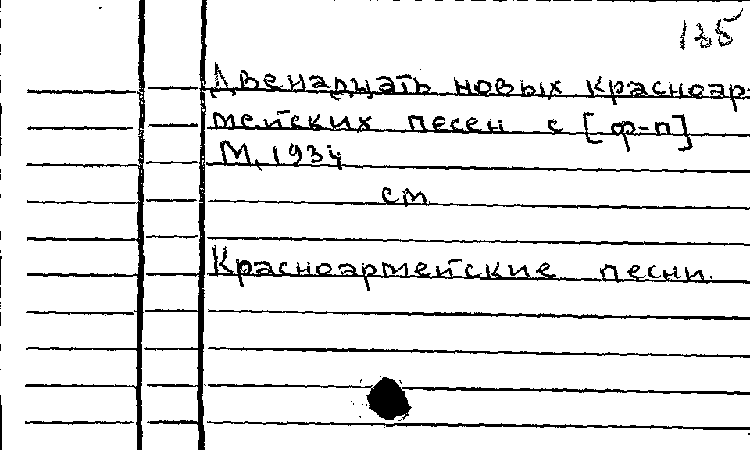 135
Двенадцать новых красноар-
мейских песен с [ф-п]
М, 1934
см
Красноармейские песни.